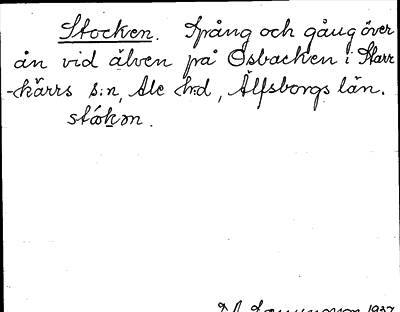 Stocken. Spång och gång över
ån vid älven på Osbacken i Starr
-kärrs s:n, Ale h:d, Älfsborgs län.
ståkən.
1937